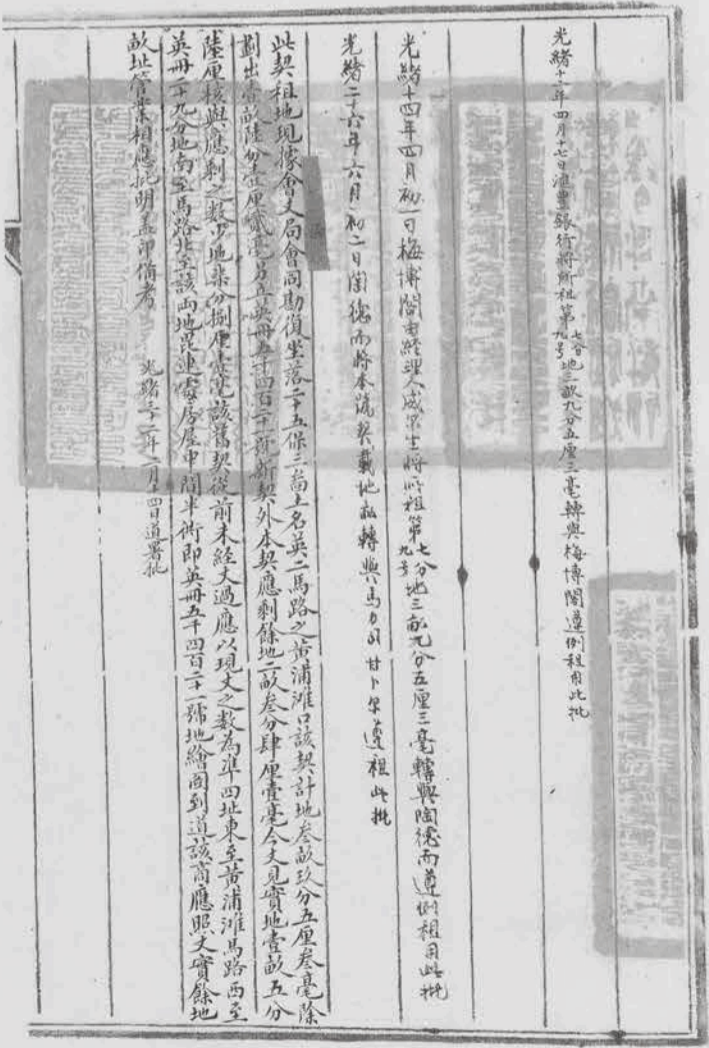 光緒十二年四月十七日滙豐銀行將所租第七分地三畝九分五厘三毫轉與梅博閣遵例租用此批
九号
光緒十四年四月初一日梅博閣由經理人威尔生將所租第七分地三畝九分五厘三毫轉與陶德而遵例租用此批
九号
光緒二十六年六月初二日陶德而將本號契載地畝轉與馬力司甘卜尔遵租此批
此契租地現據會丈局會同勘復坐落二十五保三啚土名英二馬路之黃浦灘口該契計地叁畝玖分五厘叁毫除
劃出壹畝陸分壹厘貳毫另立英冊五千四百二十一號新契外本契應剩餘地二畝叁分肆厘壹毫今丈見實地壹畝五分
陸厘核與應剩之數少地柒分捌厘壹毫該舊契從前未經丈過應以現丈之數為準四址東至黃浦灘馬路西至
英冊二十九分地南至馬路北至該商地毘連處房屋中間半衖即英冊五千四百二十一號地繪圖到道該商應照丈實餘地
畝址管業相應批明蓋印備考
光緒三十二年二月十四日道署批